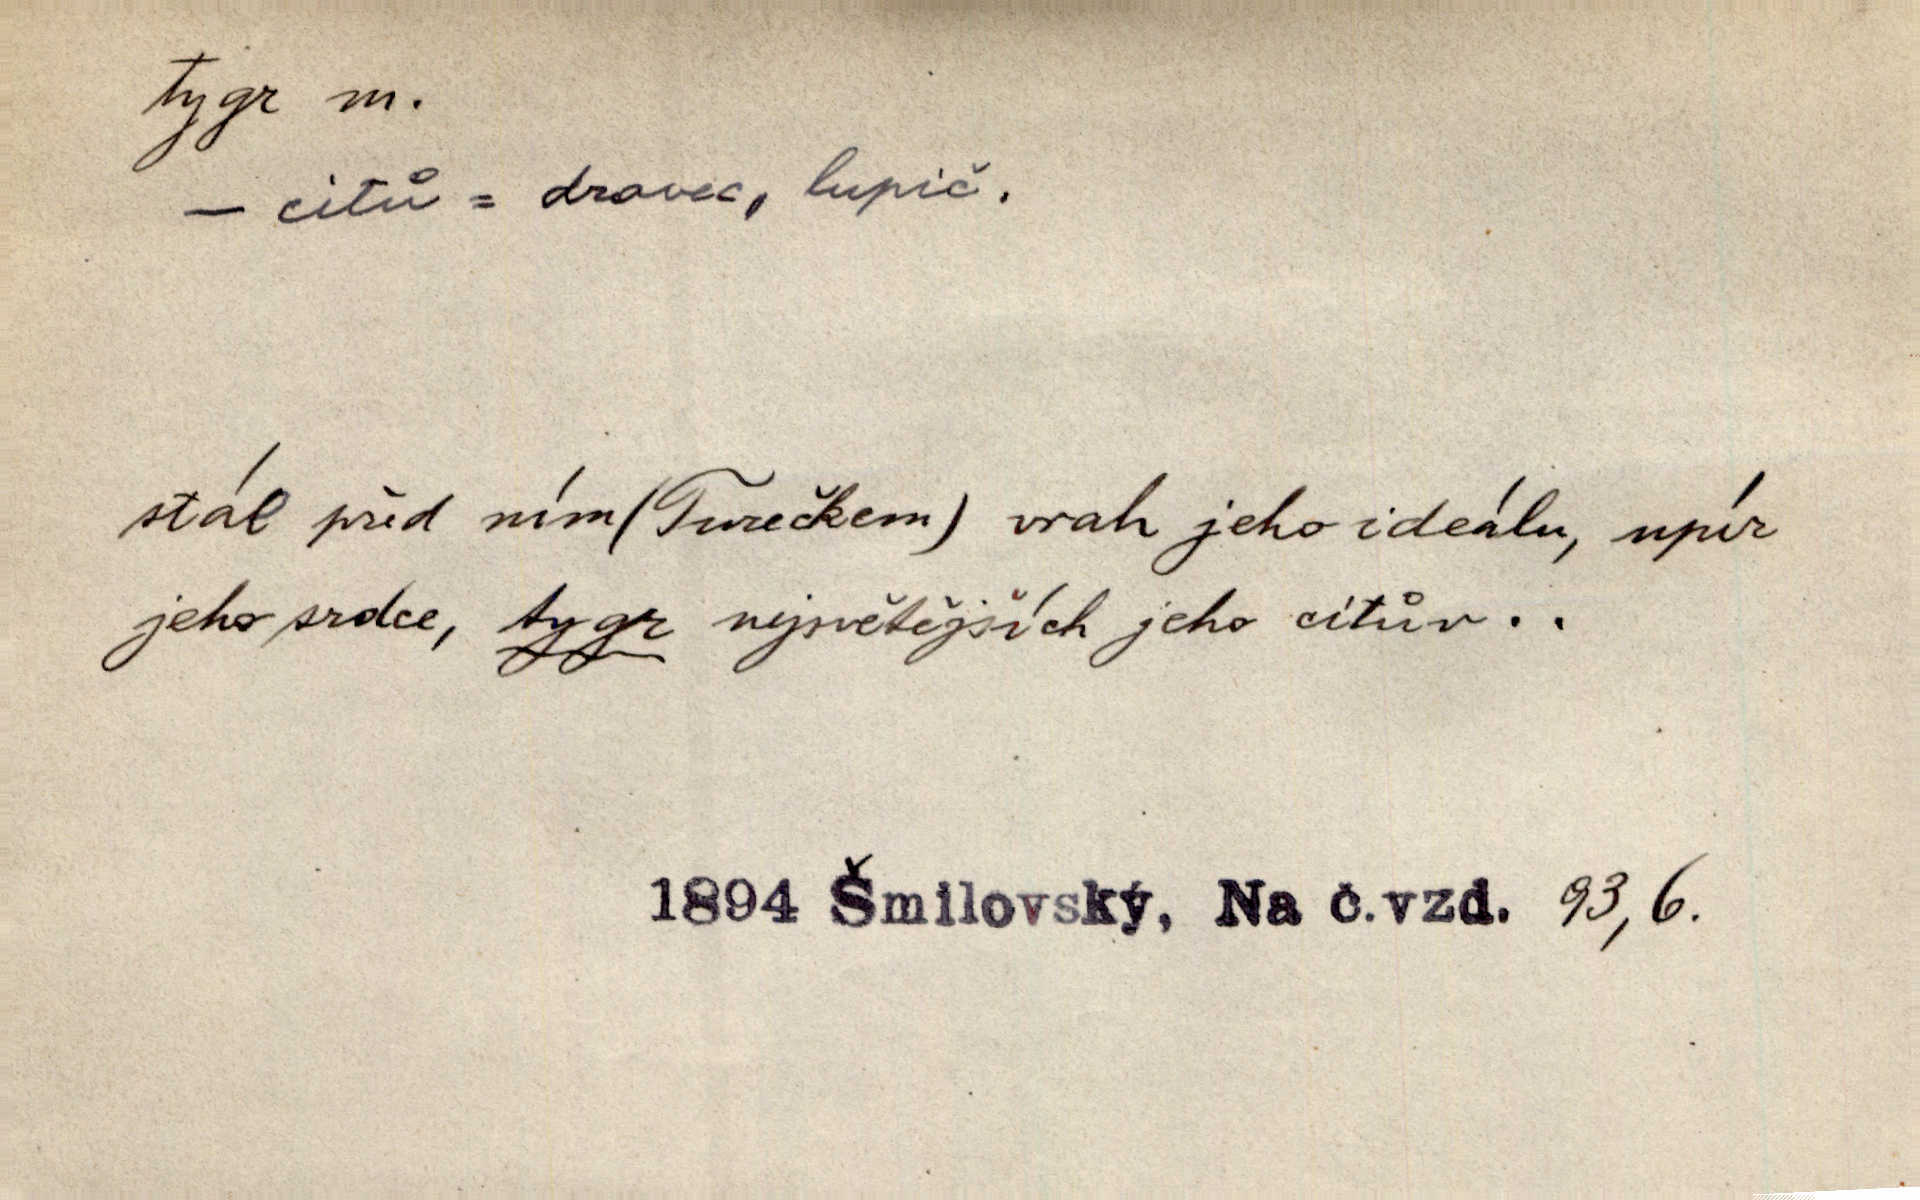 tygr m.
— citů = dravec, lupič.
stál před ním (Turečkem) vrah jeho ideálu, upír
jeho srdce, tygr nejsvětějších jeho citův . .
1894 Šmilovský, Na č.vzd. 93,6.